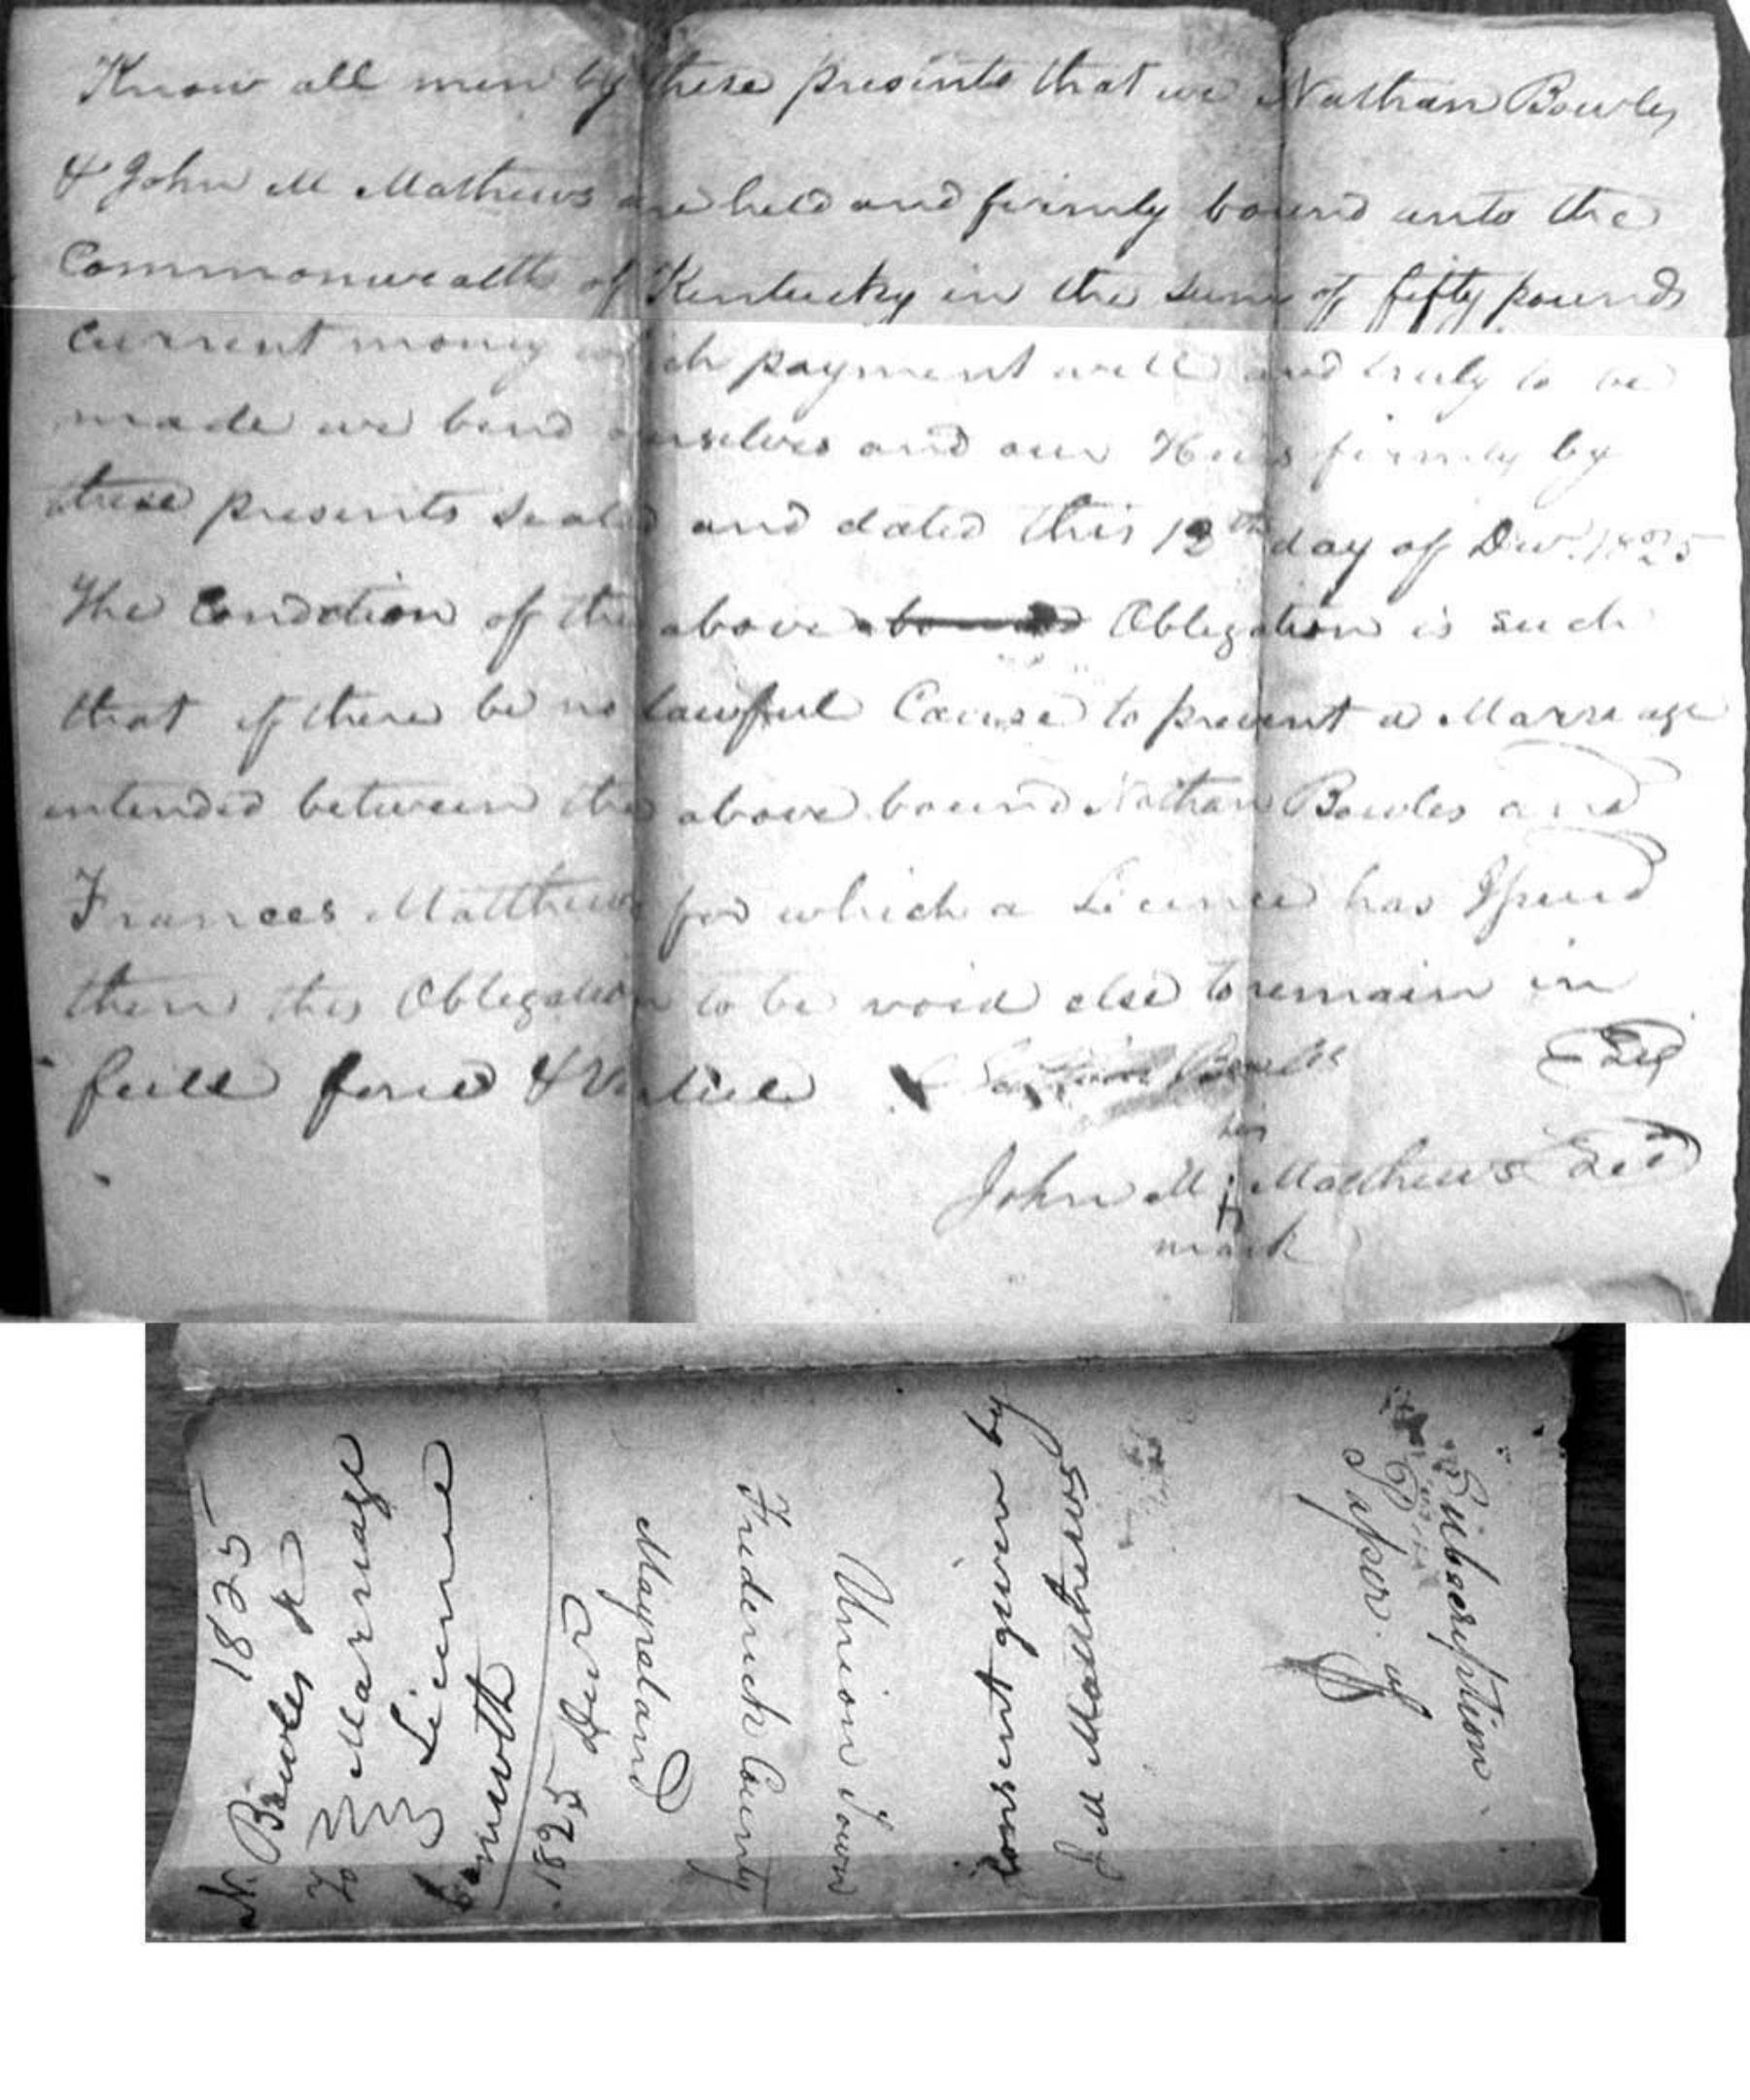 Know all men by these presents that we Nathan Bowles
& John M Mathews are held and firmly bound unto the
Commonwealth of Kentucky in the sum of fifty pounds
current money which payment well and truly to be
made we bind ourselves and our Heirs firmly by
these presents sealed and dated this 12th day of Decr. 1825
The Condition of the above bound Obligation is such
that if there be no lawful Cause to prevent a Marriage
intended between the above bound Nathan Bowles and
Frances Matthews for which a Licence has Issued
then this Obligation to be void else to remain in
full force & Virtue Bowles
his
John M Mathews
mark
N. Bowles 1825
to Marriage
Licence
1825 Decr
Maryland
Frederick County
Union Town
Consent given by
J M Matthews
Paper of
Subscription